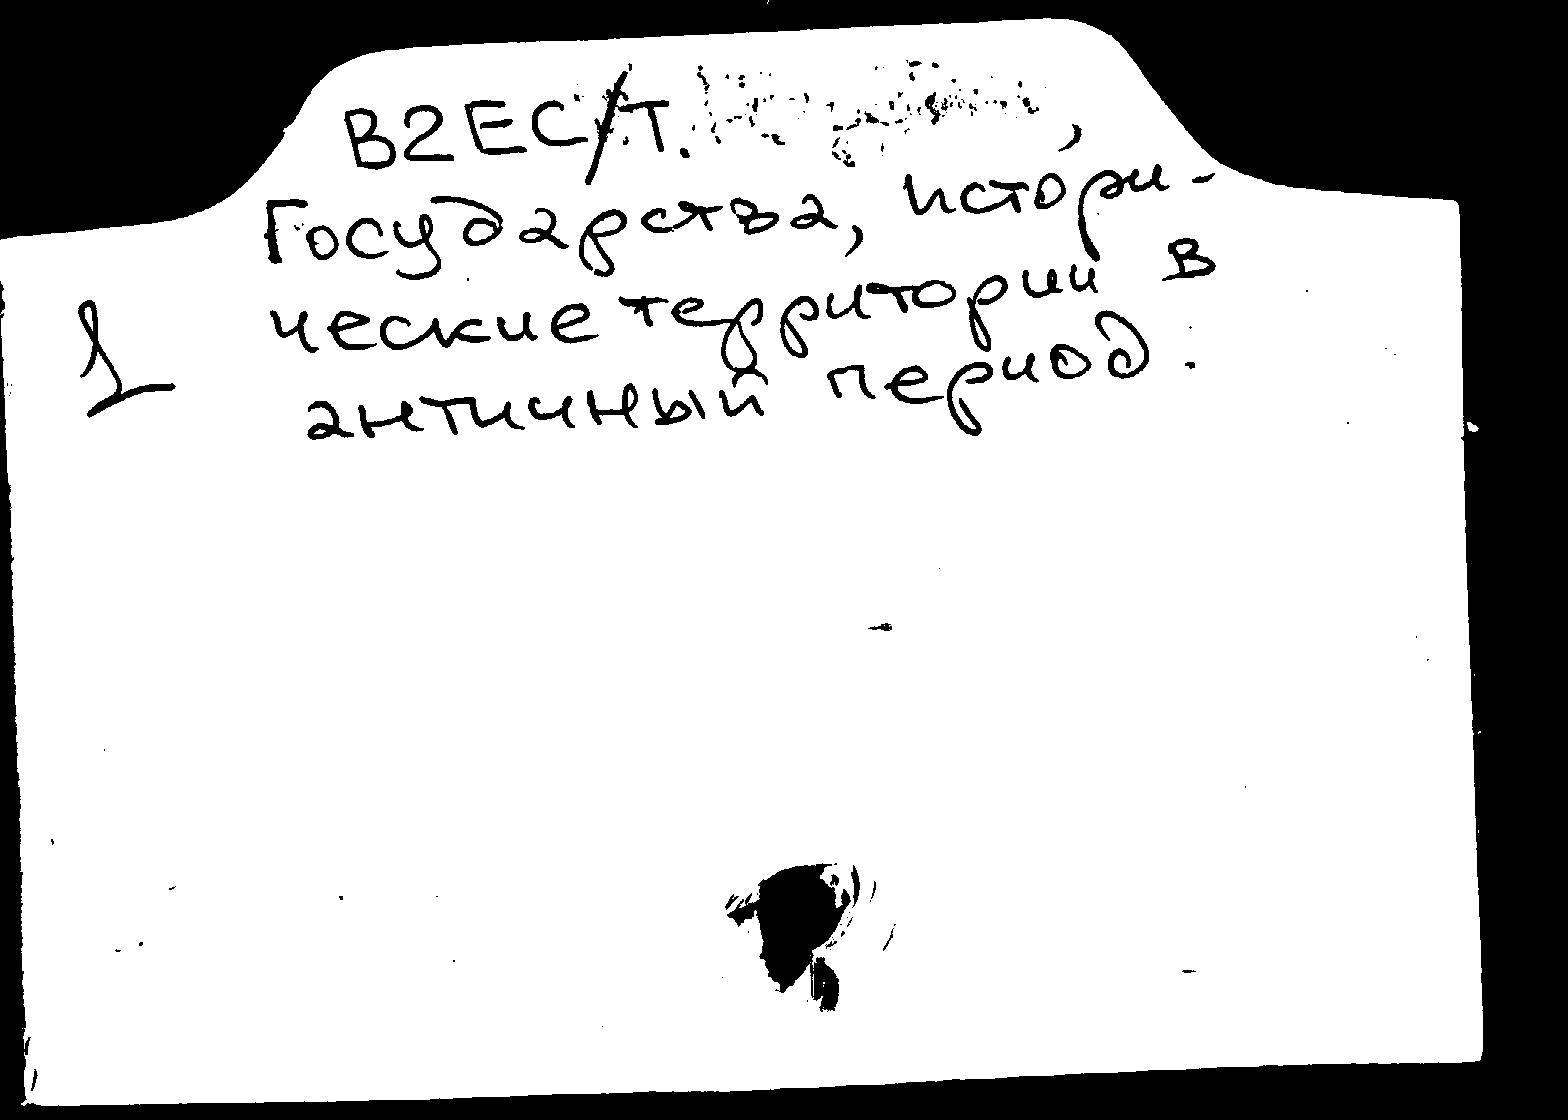 В2ЕС/Т.
Государства, истори-
ческие территории в
1
античный период.